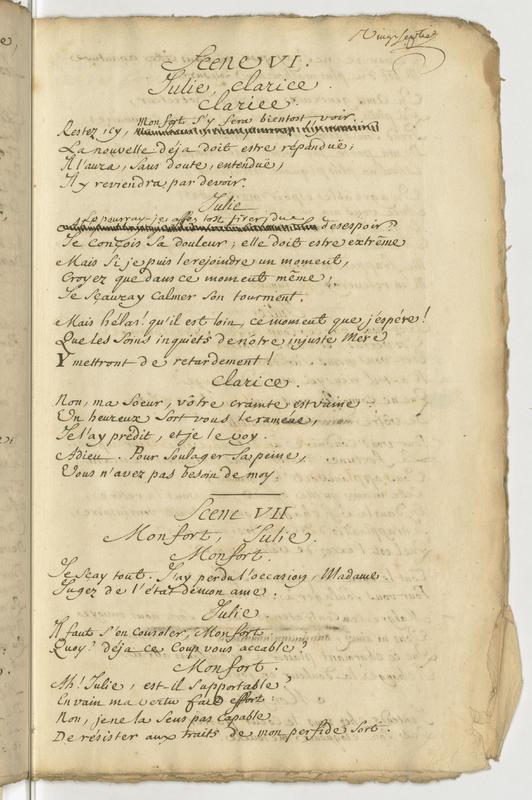 Vingt Septie
Scene VI.
Julie, Clarice.
Clarice.
Monfort s'y sera bientost voir.
Restez icy,
La nouvelle déja doit estre répanduë;
Il l'aura, sans doute, entenduë,
Il y reviendra par devoir.
Julie
pourray-je assez tost tirer du
desespoir?
Je conçois sa douleur; elle doit estre extrême
Mais si je puis le rejoindre un moment,
Croyez que dans ce moment même,
Je sçauray calmer son tourment.
Mais hélas! qu'il est loin, ce moment que j'espére!
Que les soins inquiéts de nôtre injuste Mere
Y mettront de retardement!
Clarice.
Non, ma Soeur, vôtre crainte est vaine
Un heureux sort vous le raméne,
Je l'ay prédit, et je le voy.
Adieu. Pour soulager sa peine,
Vous n'avez pas besoin de moy.
Scene VII
Monfort, Julie.
Monfort.
Je sçay tout. J'ay perdu l'occasion, Madame.
Jugez de l'état de mon ame.
Julie.
Il faut s'en consoler, Monfort.
Quoy? déja ce coup vous accable?
Monfort.
Ah! Julie, est-il supportable?
En vain ma vertu fait effort.
Non, je ne la sens pas capable
De résister aux traits de mon perfide sort.